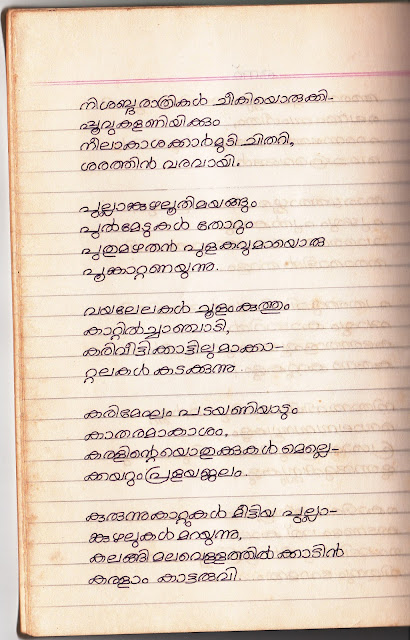 നിശബ്ദരാത്രികൾ ചീകിയൊരുക്കി-
പ്പൂവുകളണിയിക്കും
നീലാകാശക്കാർമുടി ചിതറി,
ശരത്തിൻ വരവായി.
പുല്ലാങ്കുഴലൂതിമയങ്ങും
പുൽമേടുകൾ തോറും
പുതുമഴതൻ പുളകവുമായൊരു
പൂങ്കാറ്റണയുന്നു.
വയലേലകൾ ചൂളംകുത്തും
കാറ്റിൽച്ചാഞ്ചാടി,
കരിവീട്ടിക്കാട്ടിലുമാക്കാ-
റ്റലകൾ കടക്കുന്നു.
കരിമേഘം പടയണിയാടും
കാതരമാകാശം,
കരളിന്റെയൊതുക്കുകൾ മെല്ലെ-
ക്കയറും പ്രളയജലം.
കുരുന്നുകാറ്റുകൾ മീട്ടിയ പുല്ലാ-
ങ്കുഴലുകൾ മറയുന്നു,
കലങ്ങിമലവെള്ളത്തിൽ ക്കാടിൻ
കരളാം കാട്ടരുവി.